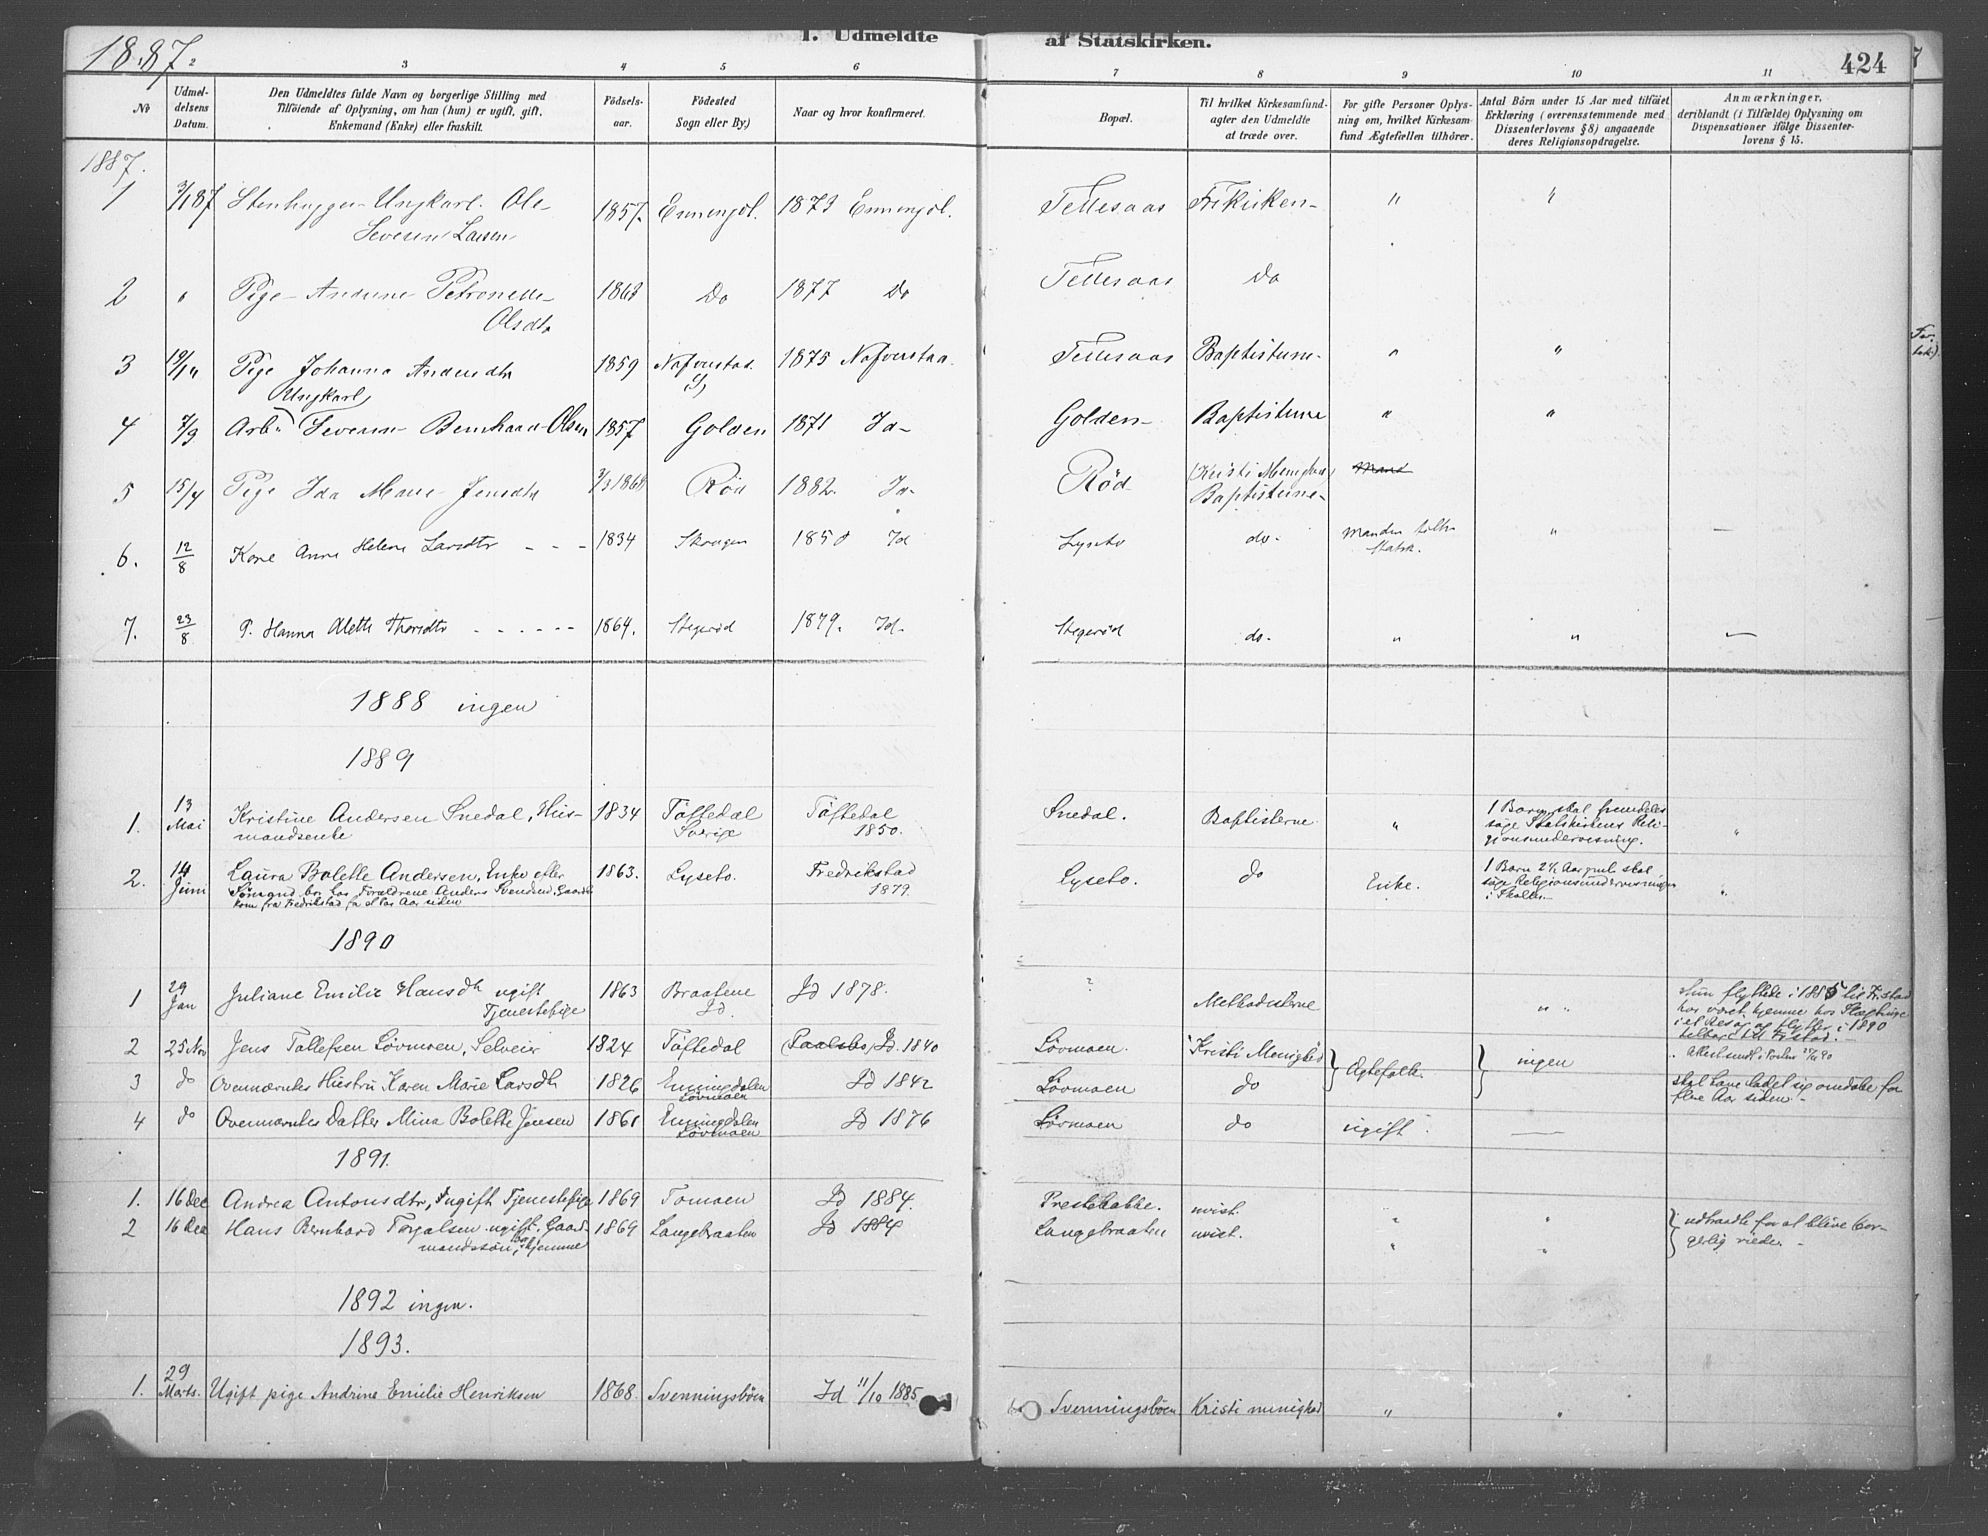 1887
I. Udmeldte af Statskirken.
424
2 3 4 5 6 7 8 9 10 11
No
Udmeldelsens Datum.
Den Udmeldtes fulde Navn og borgerlige Stilling med
Tilföiende af Oplysning, om han (hun) er ugift, gift,
Enkemand (Enke) eller fraskilt.
Födsels-
aar.
Födested
Sogn eller By.)
Naar og hvor konfirmeret.
Bopæl.
Til hvilket Kirkesamfund-
agter den Udmeldte
at træde over.
For gifte Personer Oplys-
ning om, hvilket Kirkesam-
fund Ægtefællen tilhörer.
Antal Börn under 15 Aar med tilföiet
Erklæring (overensstemmende med
Dissenterlovens § 8) angaaende
deres Religionsopdragelse.
Anmærkninger,
deriblandt (i Tilfælde) Oplysning om
Dispensationer ifölge Dissenter-
lovens § 15.
1887.
1 3/1 87 Stenhugger Ungkarl Ole 1857. Enningdl. 1873 Enningdl. Tellesaas Frikirken " "
Severin Larsen
2 " Pige Andrine Petronelle 1863 Do 1877 Do Tellesaas Do
Olsdtr
3 19/1 " Pige Johanna Andersdtr 1859 Nafverstad 1875 Nafverstad Tellesaas Baptisterne " "
Ungkarl
4 7/3 Arb. Severin Bernhard Olsen 1857 Golden 1871 Id Golden Baptisterne " "
5 15/4 Pige Ida Marie Jensdtr 3/3 1868 Röd 1882. Id Röd (Kristi Menighed) Mand
Baptisterne
6. 12/8 Kone Anne Helene Larsdtr - - - 1834 Skaugen 1850 Id Lyseto do. Manden tilh. " —
Statsk.
7. 23/8 P. Hanna Alette Thorsdtr - - - - - - 1864. Stegeröd 1879. Id. Stegeröd do. " " —
1888 ingen
1889
1. 13 Mai Kristine Andersen Snedal, Hus- 1834 Töftedal Töftedal Snedal. Baptisterne " 1 Barn skal fremdeles "
mandsenke Sverige 1850. söge Statskirkens Reli-
gionsundervisning.
2. 14 Juni Laura Bolette Andersen, Enke efter 1863. Lyseto. Fredrikstad Lyseto. do Enke. 1 Barn 2½ Aar gml. skal "
Sömand, bor hos Forældrene Anders Svendsen, Gaardb. 1879. söge Religionsundervisningen
kom fra Fredrikstad for et Par Aar siden i Skolen.
1890
1 29 Jan Juliane Emilie Hansdtr ugift 1863 Braatene Id 1878. ? Methodisterne " " Hun flyttede i 1885 til Fr.stad
Tjenestepige Id. har været hjemme hos Slægtninge
i et Aar og flytter i 1890
tilbage til Fr.stad. —
2 25 Nov Jens Tollefsen Lövmoen, Selveier 1824 Töftedal (Paalsbo) Id. 1840 Lövmoen. Kristi Menighed Ægtefolk. ingen
3 do Ovennævntes Hustru Karen Marie Larsdtr 1826 Enningdalen Id 1842 Lövmoen do skal have ladet sig omdöbe for
Lövmoen flere Aar siden —
4 do Ovennævntes Datter Mina Bolette Jensen 1861 Enningdalen Id 1876 Lövmoen do ugift. —
Lövmoen
1891.
1. 16 Dec Andrea Antonsdtr, ugift Tjenestepige 1869 Tomoen Id 1884. Prestebakke. uvist. " " udtraadte for at blive bor-
2 16 Dec Hans Bernhard Torgalsen ugift, Gaard- 1869 Langebraaten Id 1884 Langebraaten uvist. " " gerlig viede. —
mandssön, bor hjemme
1892 ingen.
1893.
1. 29 Marts. Ugift pige Andrine Emilie Henriksen 1868. Svenningsböen Id 11/10 1885. Svenningsböen Kristi menighed " "